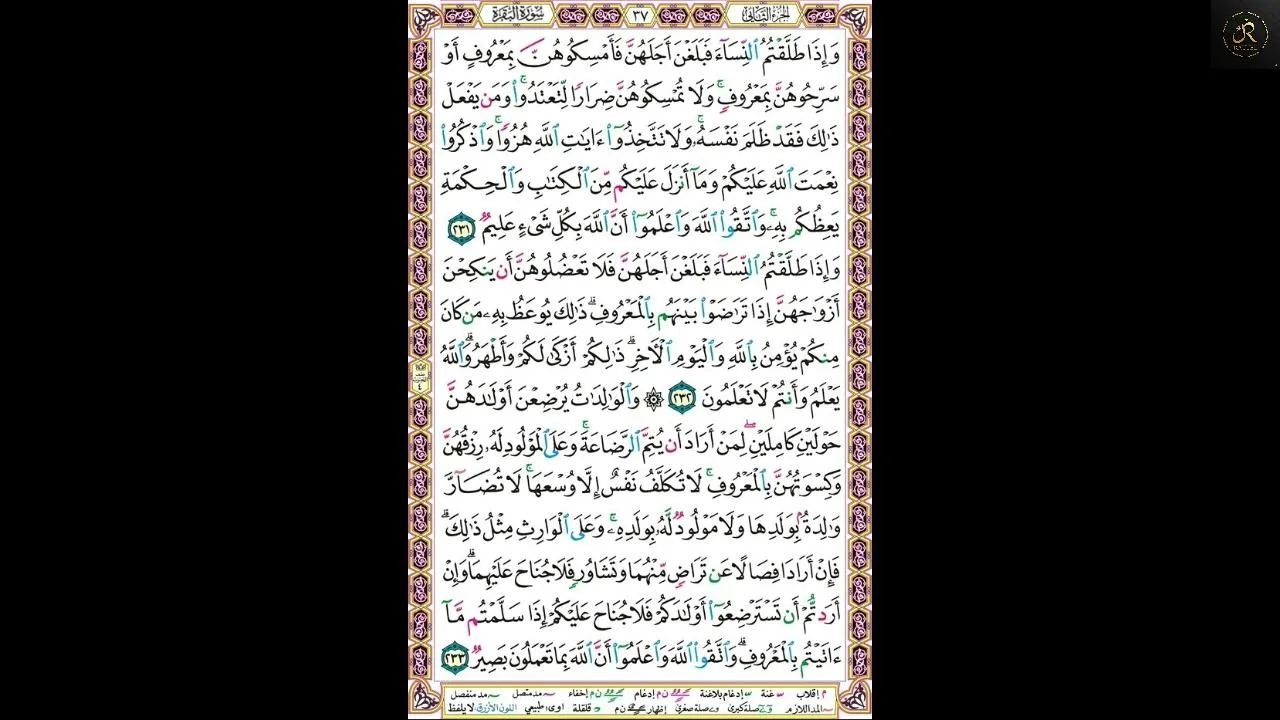 الجزء الثاني ٣٧ سورة البقرة
وَإِذَا طَلَّقْتُمُ ٱلنِّسَآءَ فَبَلَغْنَ أَجَلَهُنَّ فَأَمْسِكُوهُنَّ بِمَعْرُوفٍ أَوْ
سَرِّحُوهُنَّ بِمَعْرُوفٍۚ وَلَا تُمْسِكُوهُنَّ ضِرَارًا لِّتَعْتَدُوا۟ۚ وَمَن يَفْعَلْ
ذَٰلِكَ فَقَدْ ظَلَمَ نَفْسَهُۥۚ وَلَا تَتَّخِذُوٓا۟ ءَايَٰتِ ٱللَّهِ هُزُوًاۚ وَٱذْكُرُوا۟
نِعْمَتَ ٱللَّهِ عَلَيْكُمْ وَمَآ أَنزَلَ عَلَيْكُم مِّنَ ٱلْكِتَٰبِ وَٱلْحِكْمَةِ
يَعِظُكُم بِهِۦۚ وَٱتَّقُوا۟ ٱللَّهَ وَٱعْلَمُوٓا۟ أَنَّ ٱللَّهَ بِكُلِّ شَىْءٍ عَلِيمٌ ٢٣١
وَإِذَا طَلَّقْتُمُ ٱلنِّسَآءَ فَبَلَغْنَ أَجَلَهُنَّ فَلَا تَعْضُلُوهُنَّ أَن يَنكِحْنَ
أَزْوَٰجَهُنَّ إِذَا تَرَٰضَوْا۟ بَيْنَهُم بِٱلْمَعْرُوفِۗ ذَٰلِكَ يُوعَظُ بِهِۦ مَن كَانَ
مِنكُمْ يُؤْمِنُ بِٱللَّهِ وَٱلْيَوْمِ ٱلْـَٔاخِرِۗ ذَٰلِكُمْ أَزْكَىٰ لَكُمْ وَأَطْهَرُۗ وَٱللَّهُ
يَعْلَمُ وَأَنتُمْ لَا تَعْلَمُونَ ٢٣٢ ۞ وَٱلْوَٰلِدَٰتُ يُرْضِعْنَ أَوْلَٰدَهُنَّ
حَوْلَيْنِ كَامِلَيْنِۖ لِمَنْ أَرَادَ أَن يُتِمَّ ٱلرَّضَاعَةَۚ وَعَلَى ٱلْمَوْلُودِ لَهُۥ رِزْقُهُنَّ
وَكِسْوَتُهُنَّ بِٱلْمَعْرُوفِۚ لَا تُكَلَّفُ نَفْسٌ إِلَّا وُسْعَهَاۚ لَا تُضَآرَّ
وَٰلِدَةٌۢ بِوَلَدِهَا وَلَا مَوْلُودٌ لَّهُۥ بِوَلَدِهِۦۚ وَعَلَى ٱلْوَارِثِ مِثْلُ ذَٰلِكَۗ
فَإِنْ أَرَادَا فِصَالًا عَن تَرَاضٍ مِّنْهُمَا وَتَشَاوُرٍ فَلَا جُنَاحَ عَلَيْهِمَاۗ وَإِنْ
أَرَدتُّمْ أَن تَسْتَرْضِعُوٓا۟ أَوْلَٰدَكُمْ فَلَا جُنَاحَ عَلَيْكُمْ إِذَا سَلَّمْتُم مَّآ
ءَاتَيْتُم بِٱلْمَعْرُوفِۗ وَٱتَّقُوا۟ ٱللَّهَ وَٱعْلَمُوٓا۟ أَنَّ ٱللَّهَ بِمَا تَعْمَلُونَ بَصِيرٌ ٢٣٣
م إقلاب غنة إدغام بلاغنة ن م إدغام ن م إخفاء مد متصل مد منفصل
المد اللازم صلة كبرى صلة صغرى إظهار ن م قلقلة اوى طبيعي اللون الأزرق لا يلفظ